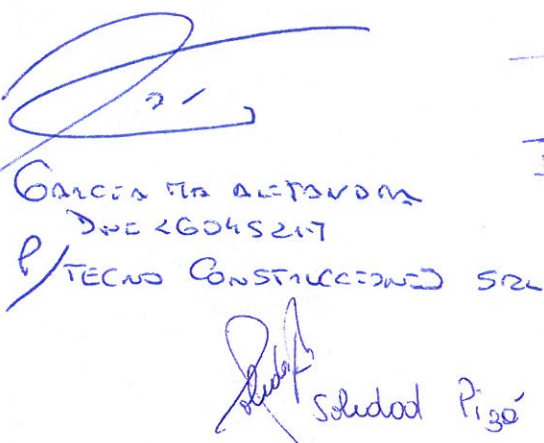 GARCIA MA ALEJANDRA
DNI 26045217
P/TECNO CONSTRUCCIONES SRL
Soledad Pizá